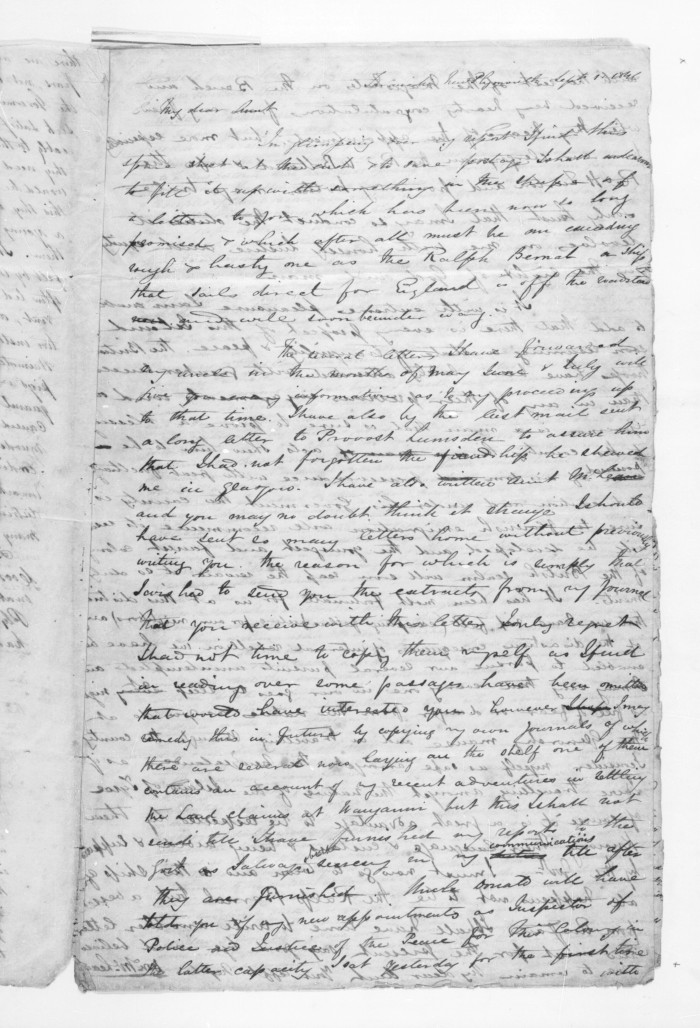 New Plymouth Sept 1/1846
My dear Aunt
In finishing my report I find this
spare sheet at the end & to save postage I shall endeavour
to fill it up with something in the shape of
a letter to you which has been now so long
promised & which after all must be an exceeding
rough & hasty one as the Ralph Bernal a Ship
that sails direct for England is off the roadstead
and will soon be under way.
The several letters I have forwarded
my Uncle in the months of May June & July will
give information as to my proceedings up
to that time. I have also by the last mail sent
a long letter to Provost Lumsden to assure him
that I had not forgotten the friendship he shewed
me in Glasgow. I have also written Aunt
and you may no doubt think it strange I should
have sent so many letters home without previously
writing you. the reason for which is simply that
I wished to send you the extracts from my Journal
that you receive with this letter. I only regret
I had not time to copy them myself as I find
in reading over some passages have been omitted
that would have interested you however I may
remedy this in future by copying my own Journals of which
there are several now laying on the shelf one of them
contains an account of my recent adventures in settling
the Land claims at Wanganui but this I shall not
send till I have furnished my reports to the
Govt as I always in my communications till after
they are furnished. Uncle Donald will have
told you of my new appointments as Inspector of
Police and Justice of the Peace for this Colony in
the latter capacity I sat yesterday for the first time
with